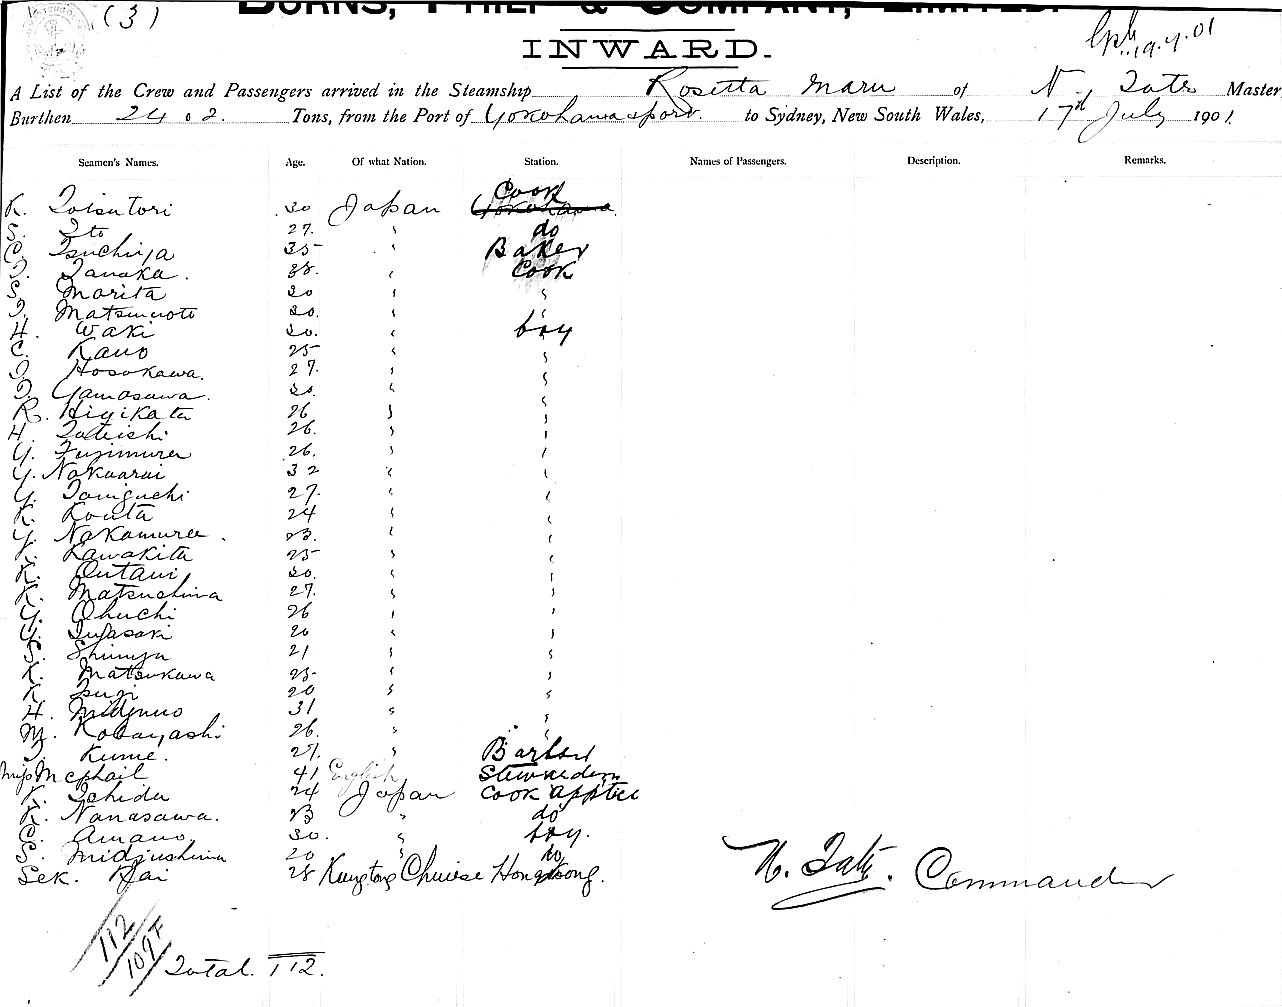 (3)
BURNS, PHILP & COMPANY, LIMITED.
INWARD.
19.7.01
A List of the Crew and Passengers arrived in the Steamship Rosetta Maru of N. Tate Master,
Burthen 2402. Tons, from the Port of Yokohama & ports to Sydney, New South Wales, 17th July 1901.
Seamen's Names. Age. Of what Nation. Station. Names of Passengers. Description. Remarks.
Cook
K. Totsutori 30 Japan Yokohama
S. Ito 27. " do
C. Tsuchiya 35 " Baker
T. Tanaka. 38. " Cook
S. Morita 30 " "
T. Matsumoto 30. " "
H. Waki 30. " boy
C. Kano 25 " "
T. Hosokawa. 27. " "
T. Yamasawa. 30. " "
R. Hijikata 26 " "
H. Tateishi 26. " "
Y. Fujimura 26. " "
Y. Nakaarai 32 " "
Y. Taniguchi 27. " "
K. Kouta 24 " "
Y. Nakamura. 23. " "
K. Kawakita 25 " "
K. Outani 30. " "
K. Matsushima 27. " "
Y. Ohuchi 26 " "
Y. Iwasaki 20 " "
S. Shimya 21 " "
K. Matsukawa 25. " "
K. Tsugi 20 " "
H. Midzuno 31 " "
M. Kobayashi 26. " "
Kume. 27. " Barber
Miss McPhail 41 English Stewardess
K. Ishida 24 Japan Cook apptce
K. Nanasawa. 23 " do
C. Amano 30. " boy.
S. Midzushima 20 " do
Sek. Hai 28 Kungtong Chinese Hongkong.
N. Tate. Commander
112
109
Total. 112.